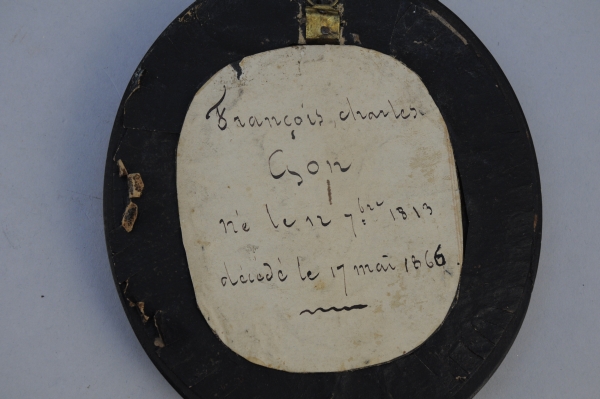 François, charles
Gson
né le 12 7bre 1813
décédé le 17 mai 1866.